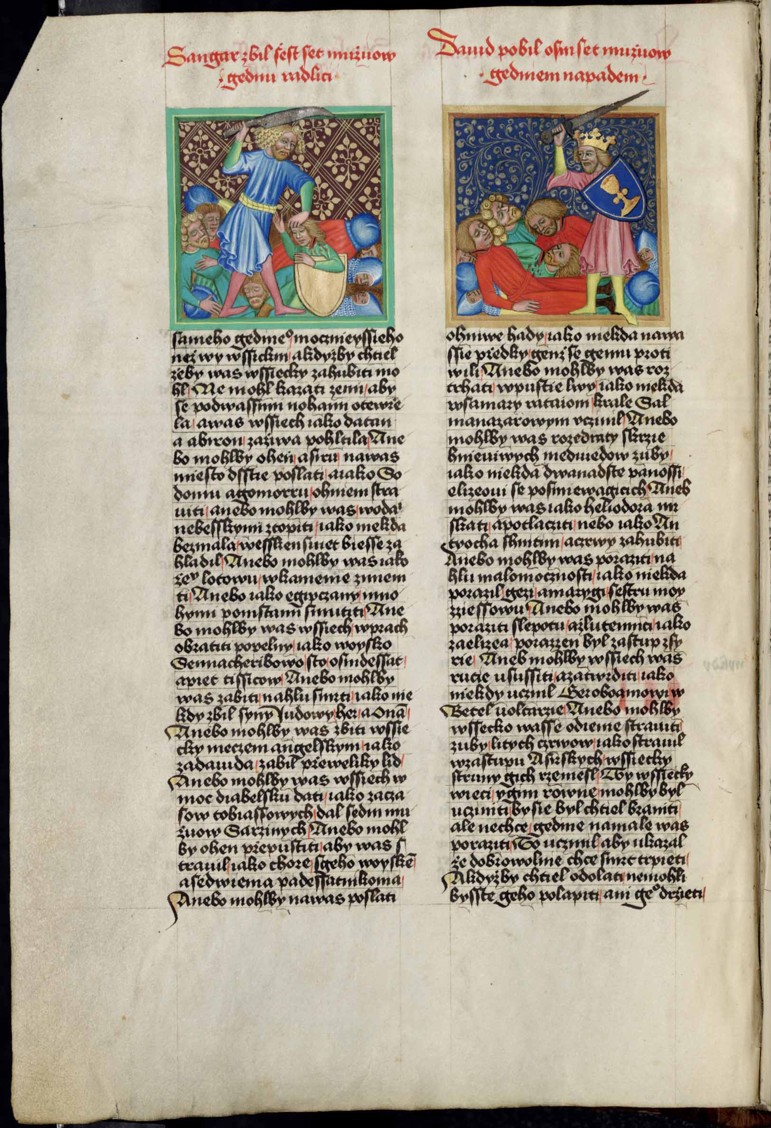 Sangar zbil ſeſt ſet muzuow
gednu radlici
ſameho gedineº mocznieyſſieho
nez wy wſſickni akdyzby chtiel
zeby was wſſiecky zahubiti mo
hl Ne mohl kazati zemi aby
ſe podwaſſimi nohami otewrƶe
la awas wſſiech iako datan
a abiron zaziwa pohltila Ane
bo mohlby ohen aſiru nawas
mieſto dſſtie poſlati aiako So
domu agomorru ohniem ſtra
witi anebo mohlby was woda
nebeſſkymi ztopiti iako niekda
bezmala weſſken ſwiet bieſſe za
hladil Anebo mohlby was iako
zeº lotowu wkamenie zmieni
ti Anebo iako egipczany mno
hymi pomſtami ſmutiti Ane
bo mohlby was wſſiech wprach
obratiti popelny iako woyſko
Sennacheribowo ſto oſmdeſſat
apiet tiſſicow Anebo mohlby
was zabiti nahlu ſmrti iako nie
kdy zbil ſyny Judowy her a Onã
Anebo mohlby was zbiti wſſie
cky meczem angelſkym iako
zadawida zabil przeweliky lid
Anebo mohlby was wſſiech w
moc diabelſku dati iako zacza
ſow tobiaſſowych dal ſedm mu
zuow Sarzinych Anebo mohl
by ohen przepuſtiti aby was ſ
trawil iako chore ſgeho woyſkẽ
aſedwiema padeſſatnikoma
Anebo mohlby nawas poſlati
Dauid pobil oſm ſet muzuow
gedniem napadem
ohniwe hady iako niekda nawa
ſſie przedky genz ſe gemu proti
wili Anebo mohlby was roz
trhati wpuſtie lwy iako niekda
wſamary rataiom krale Sal
manazarowym vczinil Anebo
mohlby was rozedraty ſkrzie
hniewiwych medwiedow zuby
iako niekda dwanadſte panoſſi
elizeowi ſe poſmiewagicich Aneb
mohlby was iako heliodora mr
ſkati apotlacziti nebo iako An
tyocha ſhniti aczrwy zahubiti
Anebo mohlby was poraziti na
hlu malomocznoſti iako niekda
porazil gezi amarygi ſeſtru moy
zzieſſowu Anebo mohlby was
poraziti ſlepotu azlu temnici iako
zaelizea porazzen byl zaſtup zſy
rie Aneb mohlby wſſiech was
rucie uſuſſiti azatwrditi iako
niekdy uczinil Geroboamowi w
Betel uoltarzie Anebo mohlby
wſſecko waſſe odienie ſtrawiti
zuby litych czrwow iako ſtrawil
wzaſtupu Aſirſkych wſſiecky
ſtruny gich rzemeſl Ty wſſiecky
wieci ygim rowne mohlby byl
ucziniti byſie byl chtiel braniti
ale nechce gedine namale was
poraziti To uczinil aby ukazal
ze dobrowolnie chce ſmrt trpieti
Akdyzby chtiel odolati nemohli
byſſte geho polapiti ani geº drzieti